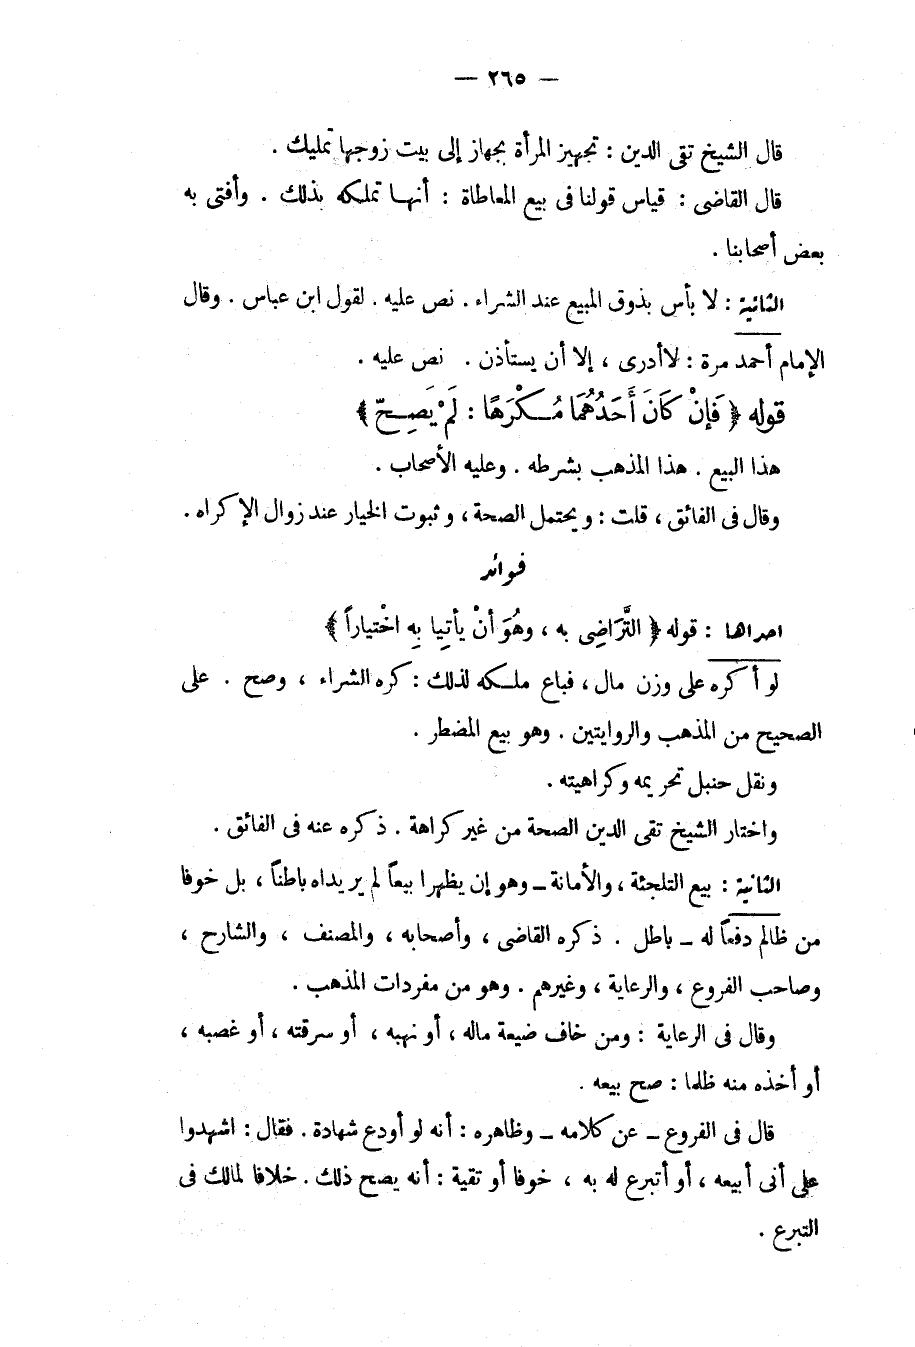 — ٢٦٥ —
قال الشيخ تقى الدين : تجهيز المرأة بجهاز إلى بيت زوجها تمليك .
قال القاضى : قياس قولنا فى بيع المعاطاة : أنها تملكه بذلك . وأفتى به
بعض أصحابنا .
الثانية : لا بأس بذوق المبيع عند الشراء . نص عليه . لقول ابن عباس . وقال
الإمام أحمد مرة : لا أدرى ، إلا أن يستأذن . نص عليه .
قوله ﴿ فَإِنْ كَانَ أَحَدُهُمَا مُكْرَهًا : لَمْ يَصِحّ ﴾
هذا البيع . هذا المذهب بشرطه . وعليه الأصحاب .
وقال فى الفائق ، قلت : ويحتمل الصحة ، وثبوت الخيار عند زوال الإكراه .
فوائد
احداها : قوله ﴿ التَّرَاضِى به ، وهُوَ أنْ يأتِيا بِهِ اخْتياراً ﴾
لو أكره على وزن مال ، فباع ملكه لذلك : كره الشراء ، وصح . على
الصحيح من المذهب والروايتين . وهو بيع المضطر .
ونقل حنبل تحريمه وكراهيته .
واختار الشيخ تقى الدين الصحة من غير كراهة . ذكره عنه فى الفائق .
الثانية : بيع التلجئة ، والأمانة ــ وهو إن يظهرا بيعاً لم يريداه باطناً ، بل خوفا
من ظالم دفعاً له ــ باطل . ذكره القاضى ، وأصحابه ، والمصنف ، والشارح ،
وصاحب الفروع ، والرعاية ، وغيرهم . وهو من مفردات المذهب .
وقال فى الرعاية : ومن خاف ضيعة ماله ، أو نهبه ، أو سرقته ، أو غصبه ،
أو أخذه منه ظلما : صح بيعه .
قال فى الفروع ــ عن كلامه ــ وظاهره : أنه لو أودع شهادة . فقال : اشهدوا
على أنى أبيعه ، أو أتبرع له به ، خوفا أو تقية : أنه يصح ذلك . خلافا لمالك فى
التبرع .